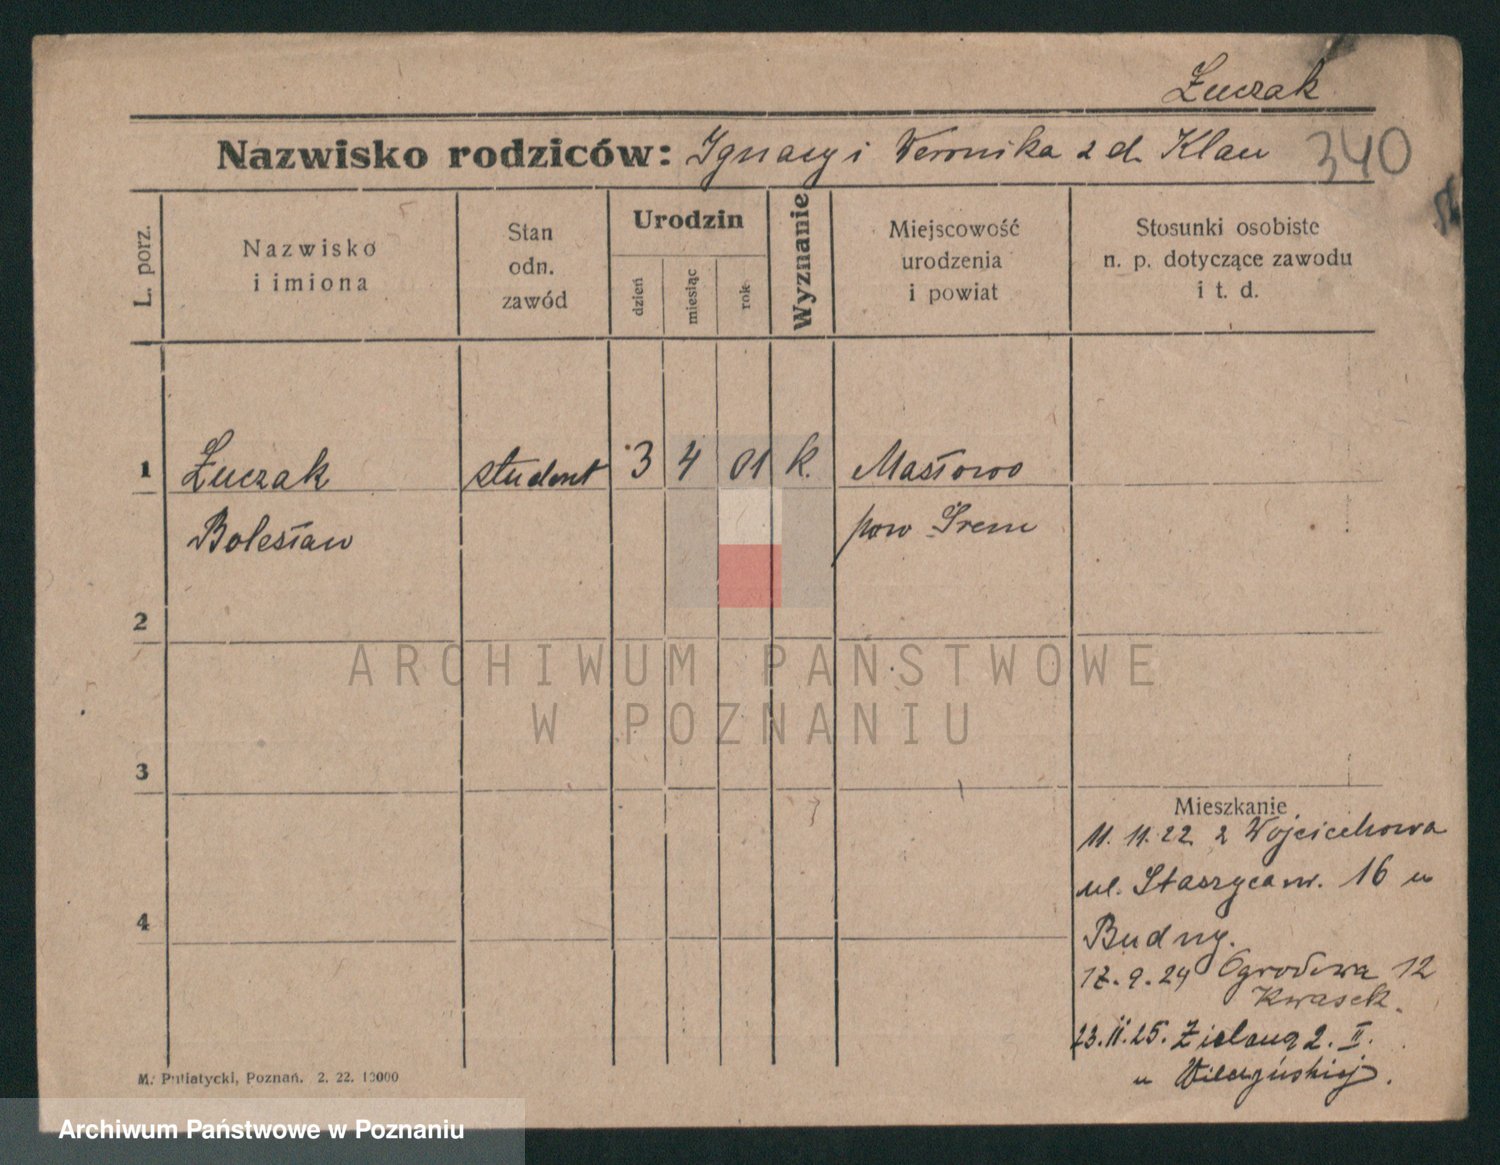 Łuczak
Nazwisko rodziców: Ignacy i Weronika z d. Klau
340
L. porz.
Nazwisko
i imiona
Stan
odn.
zawód
Urodzin
dzień
miesiąc
rok
Wyznanie
Miejscowość
urodzenia
i powiat
Stosunki osobiste
n. p. dotyczące zawodu
i t. d.
1 Łuczak student 3 4 01 k. Masłowo
Bolesław pow Śrem
2
3
4
ARCHIWUM PAŃSTWOWE
W POZNANIU
Mieszkanie
11. 11. 22 z Wojciechowa
ul. Staszyca nr. 16 u
Budny.
17. 9. 24 Ogrodowa 12
Kwasek.
23. 11. 25. Zielona 2. II.
u Wilczyńskiej.
M. Putiatycki, Poznań. 2. 22. 10000
Archiwum Państwowe w Poznaniu